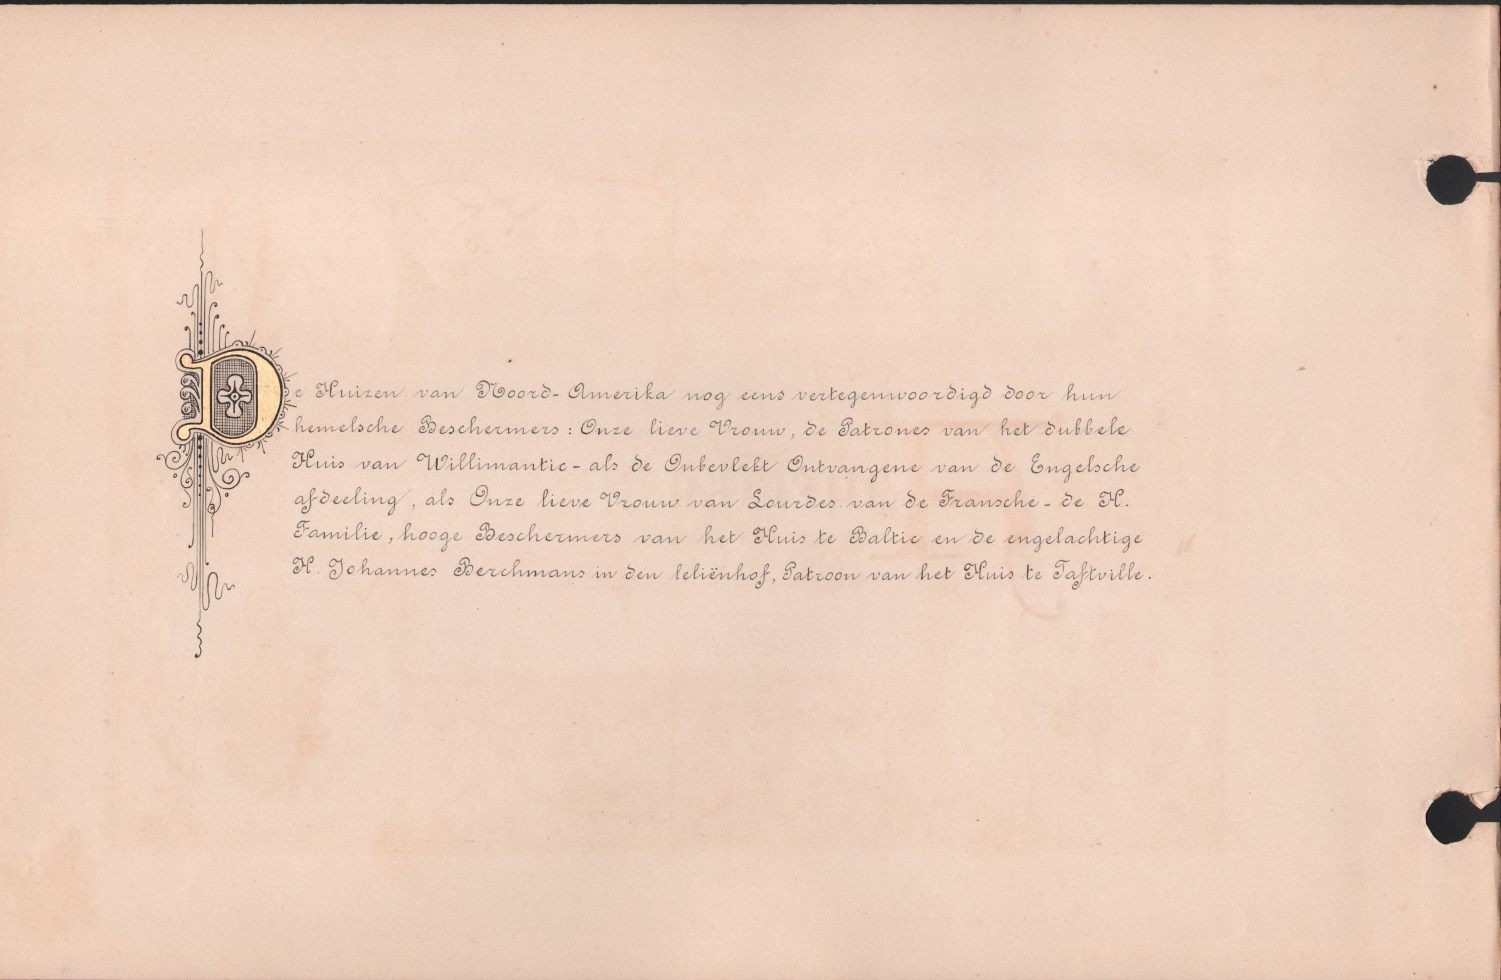 De Huizen van Noord-Amerika nog eens vertegenwoordigd door hun
hemelsche Beschermers: Onze lieve Vrouw, de Patrones van het dubbele
Huis van Willimantic - als de Onbevlekt Ontvangene van de Engelsche
afdeeling, als Onze lieve Vrouw van Lourdes van de Fransche - de H.
Familie, hooge Beschermers van het Huis te Baltic en de engelachtige
H. Johannes Berchmans in den leliënhof, Patroon van het Huis te Taftville.